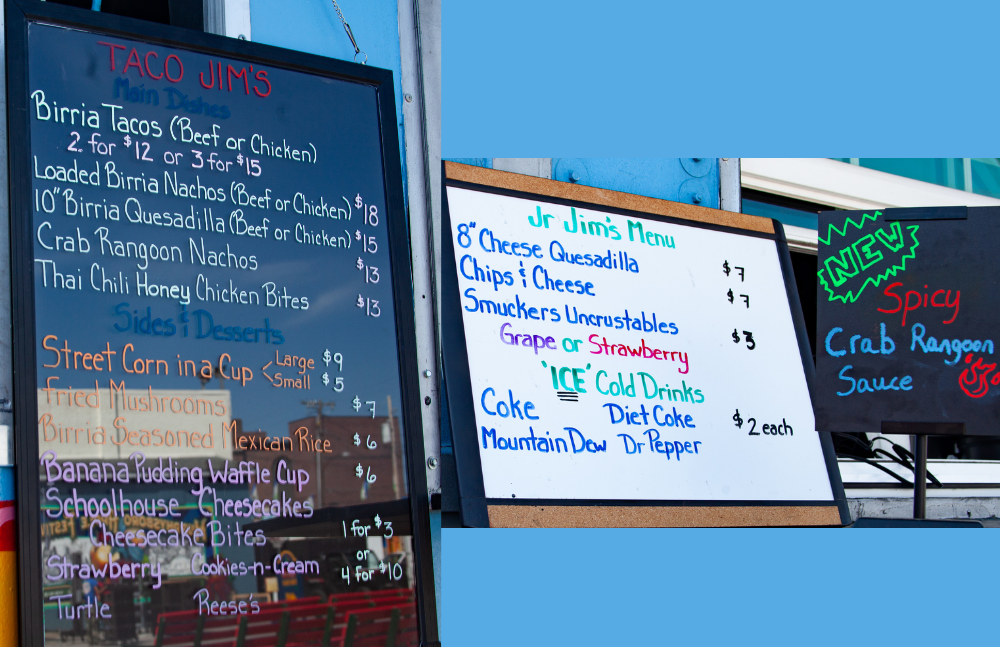 TACO JIM'S
Main Dishes
Birria Tacos (Beef or Chicken)
2 for $12 or 3 for $15
Loaded Birria Nachos (Beef or Chicken) $18
10" Birria Quesadilla (Beef or Chicken) $15
Crab Rangoon Nachos $13
Thai Chili Honey Chicken Bites $13
Sides & Desserts
Street Corn in a Cup < Large $9
Small $5
Fried Mushrooms $7
Birria Seasoned Mexican Rice $6
Banana Pudding Waffle Cup $6
Schoolhouse Cheesecakes
Cheesecake Bites 1 for $3
or
Strawberry Cookies-n-Cream 4 for $10
Turtle Reese's
Jr Jim's Menu
8" Cheese Quesadilla $7
Chips & Cheese $7
Smuckers Uncrustables $3
Grape or Strawberry
'ICE' Cold Drinks
Coke Diet Coke $2 each
Mountain Dew Dr Pepper
NEW
Spicy
Crab Rangoon
Sauce